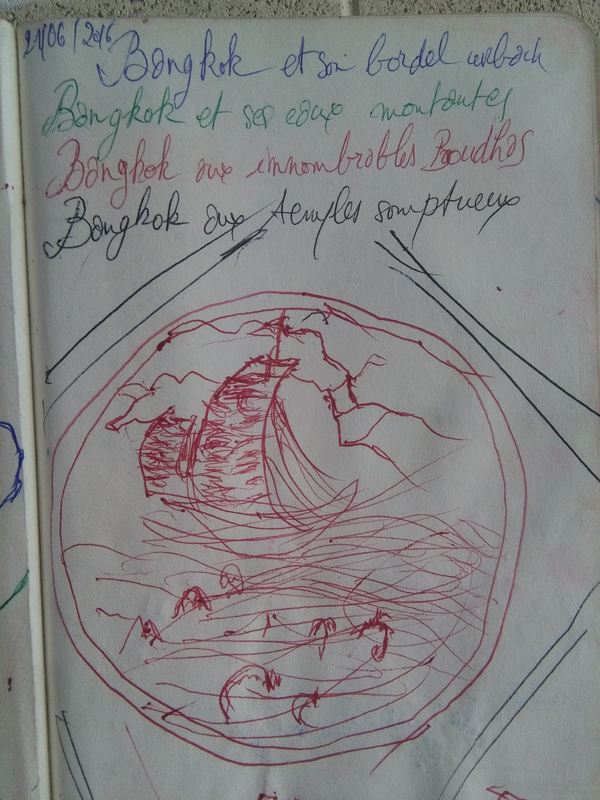 21/06/2016
Bangkok et son bordel urbain
Bangkok et ses eaux montantes
Bangkok aux innombrables Boudhas
Bangkok aux temples somptueux